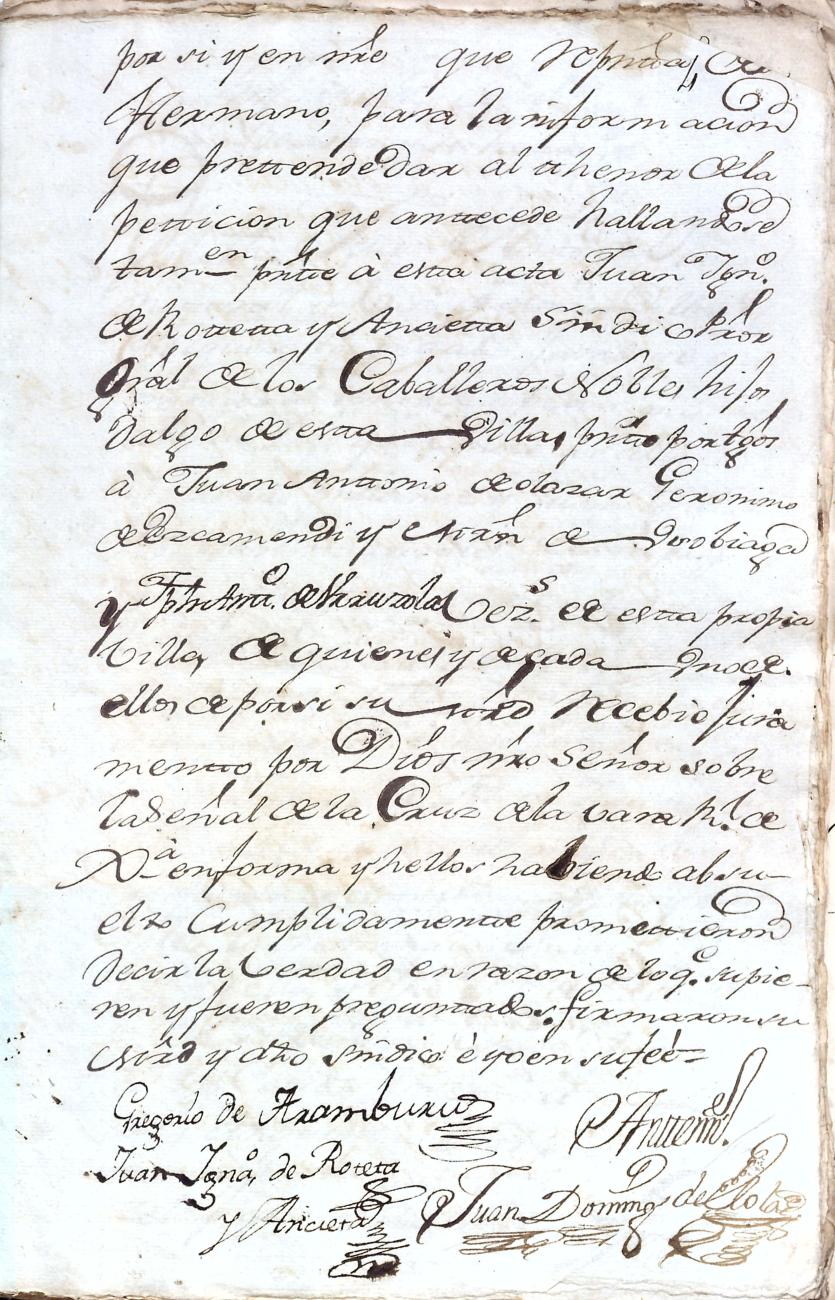 por si y en nre que representa su
Hermano, para la informacion
que prettende dar al thenor de la
petticion que anttecede hallandose
tamen prntte à estta acta Juan Ygno.
de Rotetta y Ancietta Sindico Pror
Gral de los Caballeros Nobles hijos
dalgo de estta Villa, prnto por tgos
à Juan Anttonio de olazar Geronimo
de Ezcamendi y Mrn de Vrobiaga
y Jph Antto. de Vrruzola Vezs. de estta propia
Villa, de quienes y de cada Vno de
ellos de por si su mrd recebio Jura
mentto por Dios nro Señor sobre
la Señal de la Cruz de la vara Rl. de
Jª en forma y hellos habiendo absu-
elto Cumplidamentte promettieron
decir la Verdad en razon de lo q.e supie-
ren y fueren preguntados. firmaron su
mrd y dho sindico è yo en su feè =
Gregorio de Aramburu
Antte mi.
Juan Igno, de Roteta
y Ancieta
Juan Domingo de